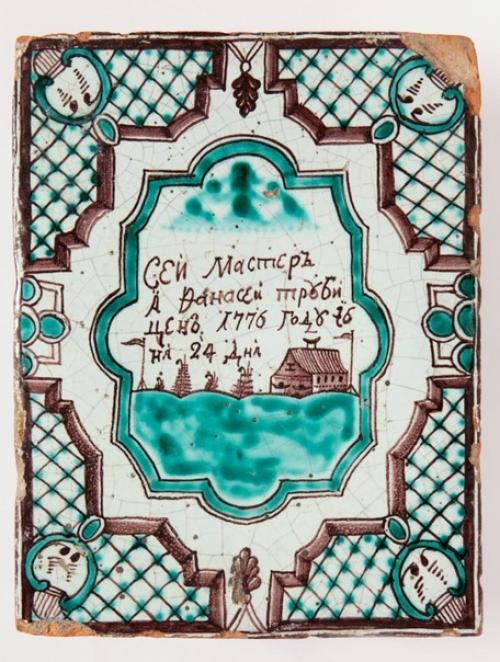 СЕЙ Мастеръ
А Фанасей трȢби
ценъ 1776 Году
на 24 Дня